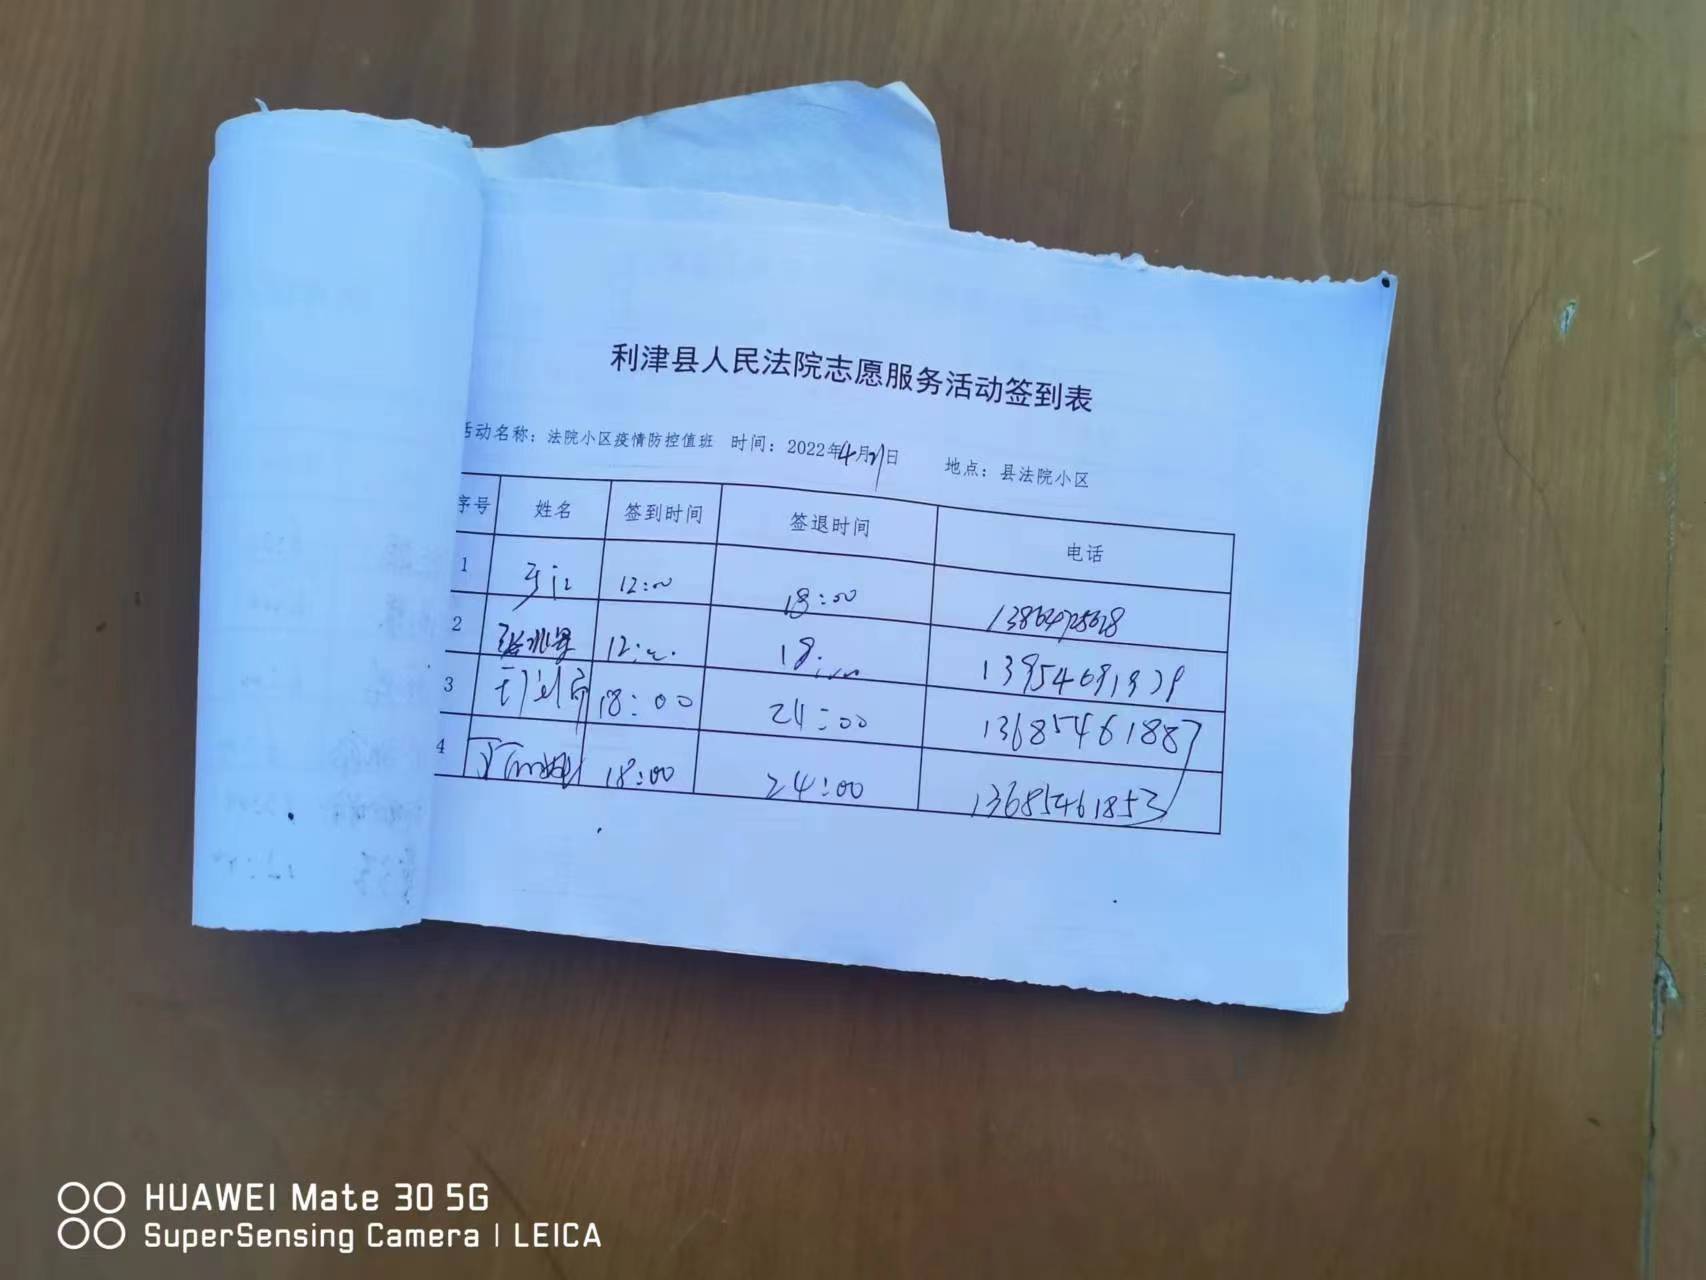 利津县人民法院志愿服务活动签到表
活动名称：法院小区疫情防控值班 时间：2022年4月21日 地点：县法院小区
序号 姓名 签到时间 签退时间 电话
1 12:00 18:00
2 12:00 18:00
3 18:00 24:00 13685461887
4 18:00 24:00 13685461853
HUAWEI Mate 30 5G
SuperSensing Camera | LEICA